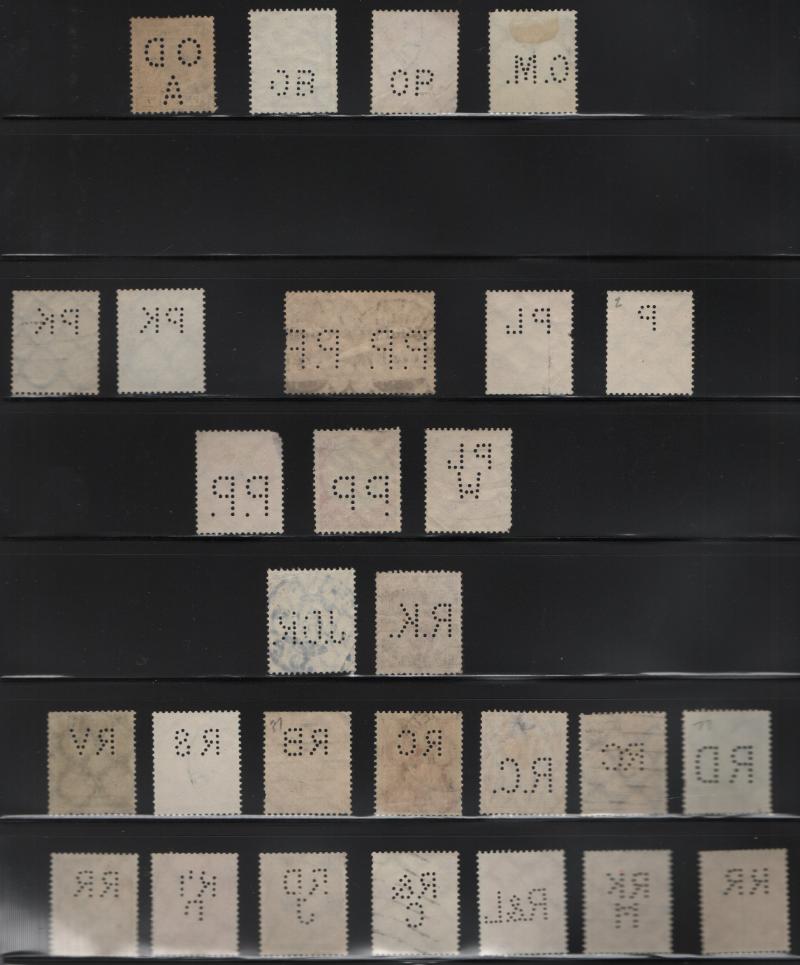 OD
A
OB
OP
O.M.
PK
PK
P.P. P.P.
PL
P
P.P.
PP.
PL
W
J.D.R.
R.K.
RV
R8
RB
RC
R.C.
RC
RD
RR
RD
J
R&
C
R&L.
RK
M
RR